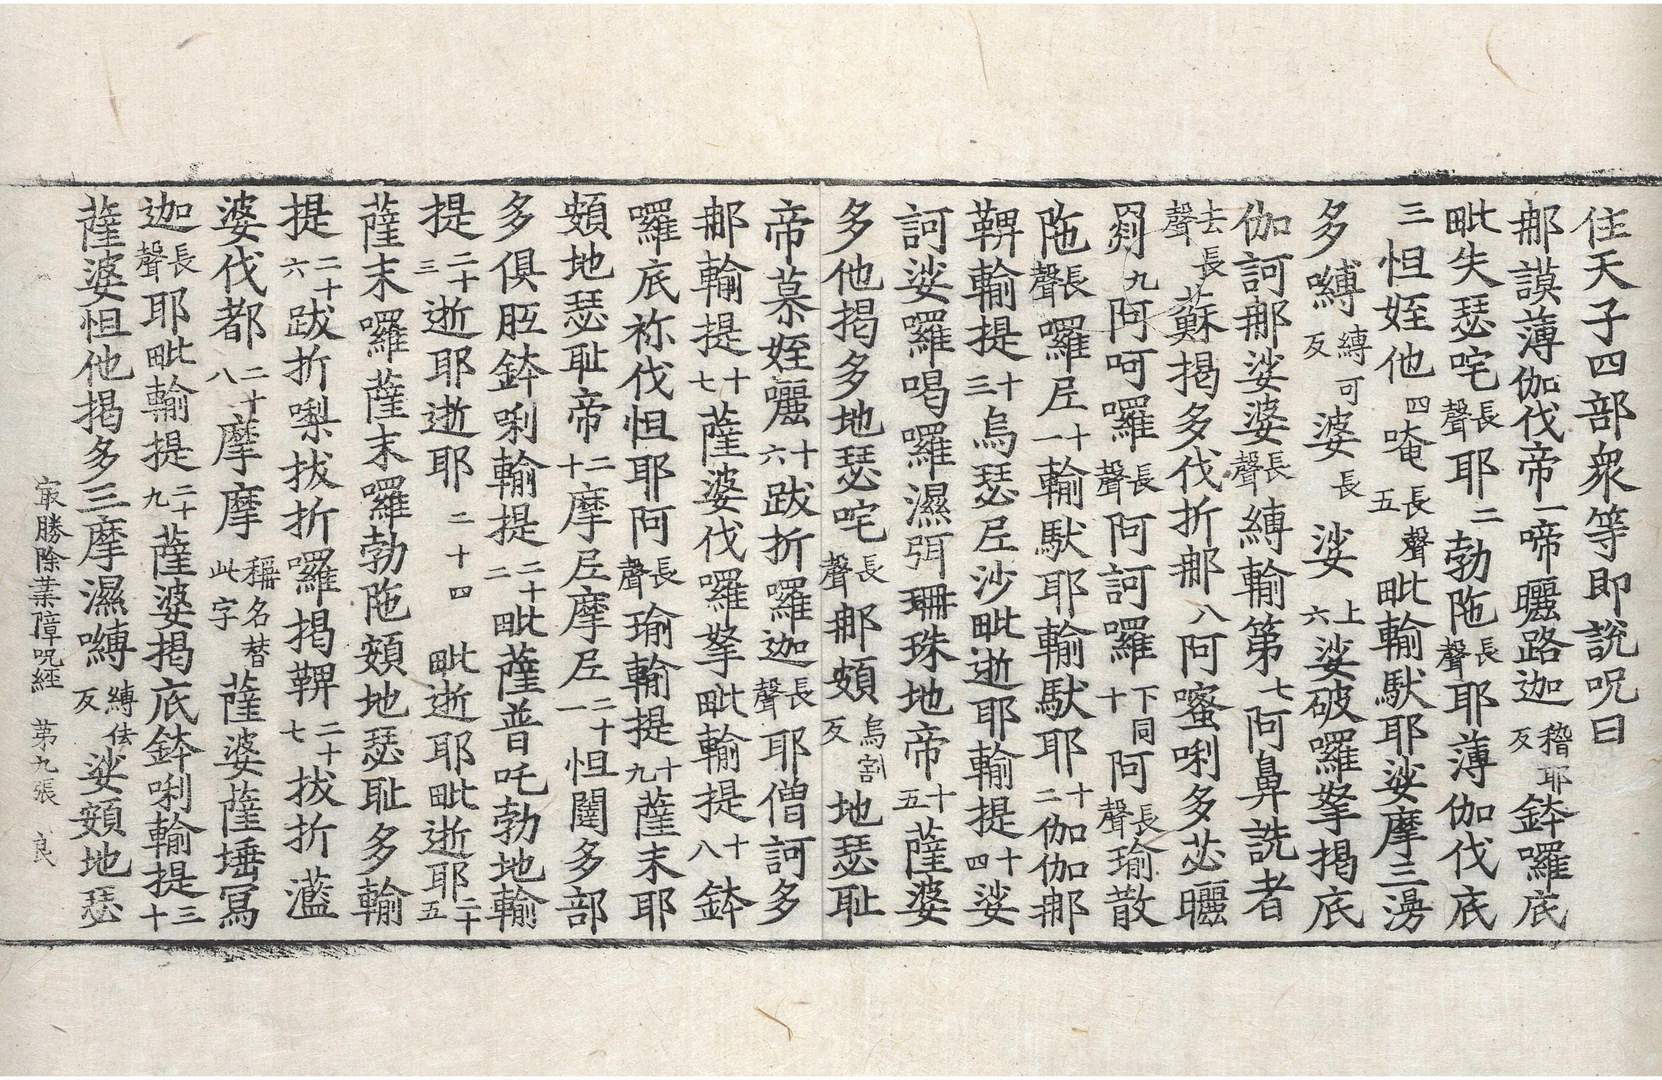 住天子四部衆等即說呪曰
那謨薄伽伐帝一啼㘑路迦稽耶反鉢囉底
毗失瑟咤長聲耶二勃陁長聲耶薄伽伐底
三怛姪他四唵長聲五毗輸馱耶娑摩三湯
多嚩縛可反婆長娑上六娑破囉拏揭底
伽訶那娑婆長聲縛輸第七阿鼻詵者
去聲長蘇揭多伐折那八阿蜜唎多苾㘑
罽九阿呵囉長聲阿訶囉下同十阿長聲瑜散
陁長聲囉𡰱十一輸馱耶輸馱耶十二伽伽那
鞞輸提十三烏瑟𡰱沙毗逝耶輸提十四娑
訶娑囉喝囉濕弭珊珠地帝十五薩婆
多他揭多地瑟咤長聲那頞烏割反地瑟耻
帝慕姪㘑十六跋折囉迦長聲耶僧訶多
那輸提十七薩婆伐囉拏毗輸提十八鉢
囉底祢伐怛耶阿長聲瑜輸提十九薩末耶
頞地瑟耻帝二十摩𡰱摩𡰱二十一怛闥多部
多俱胝鉢唎輸提二十二毗薩普吒勃地輸
提二十三逝耶逝耶二十四毗逝耶毗逝耶二十五
薩末囉薩末囉勃陁頞地瑟耻多輸
提二十六跋折㗚拔折囉揭鞞二十七拔折㘕
婆伐都二十八摩摩稱名替此字薩婆薩埵冩
迦長聲耶毗輸提二十九薩婆揭底鉢唎輸提三十
薩婆怛他揭多三摩濕嚩縛佉反娑頞地瑟
㝡勝除業障呪經　第九張　良